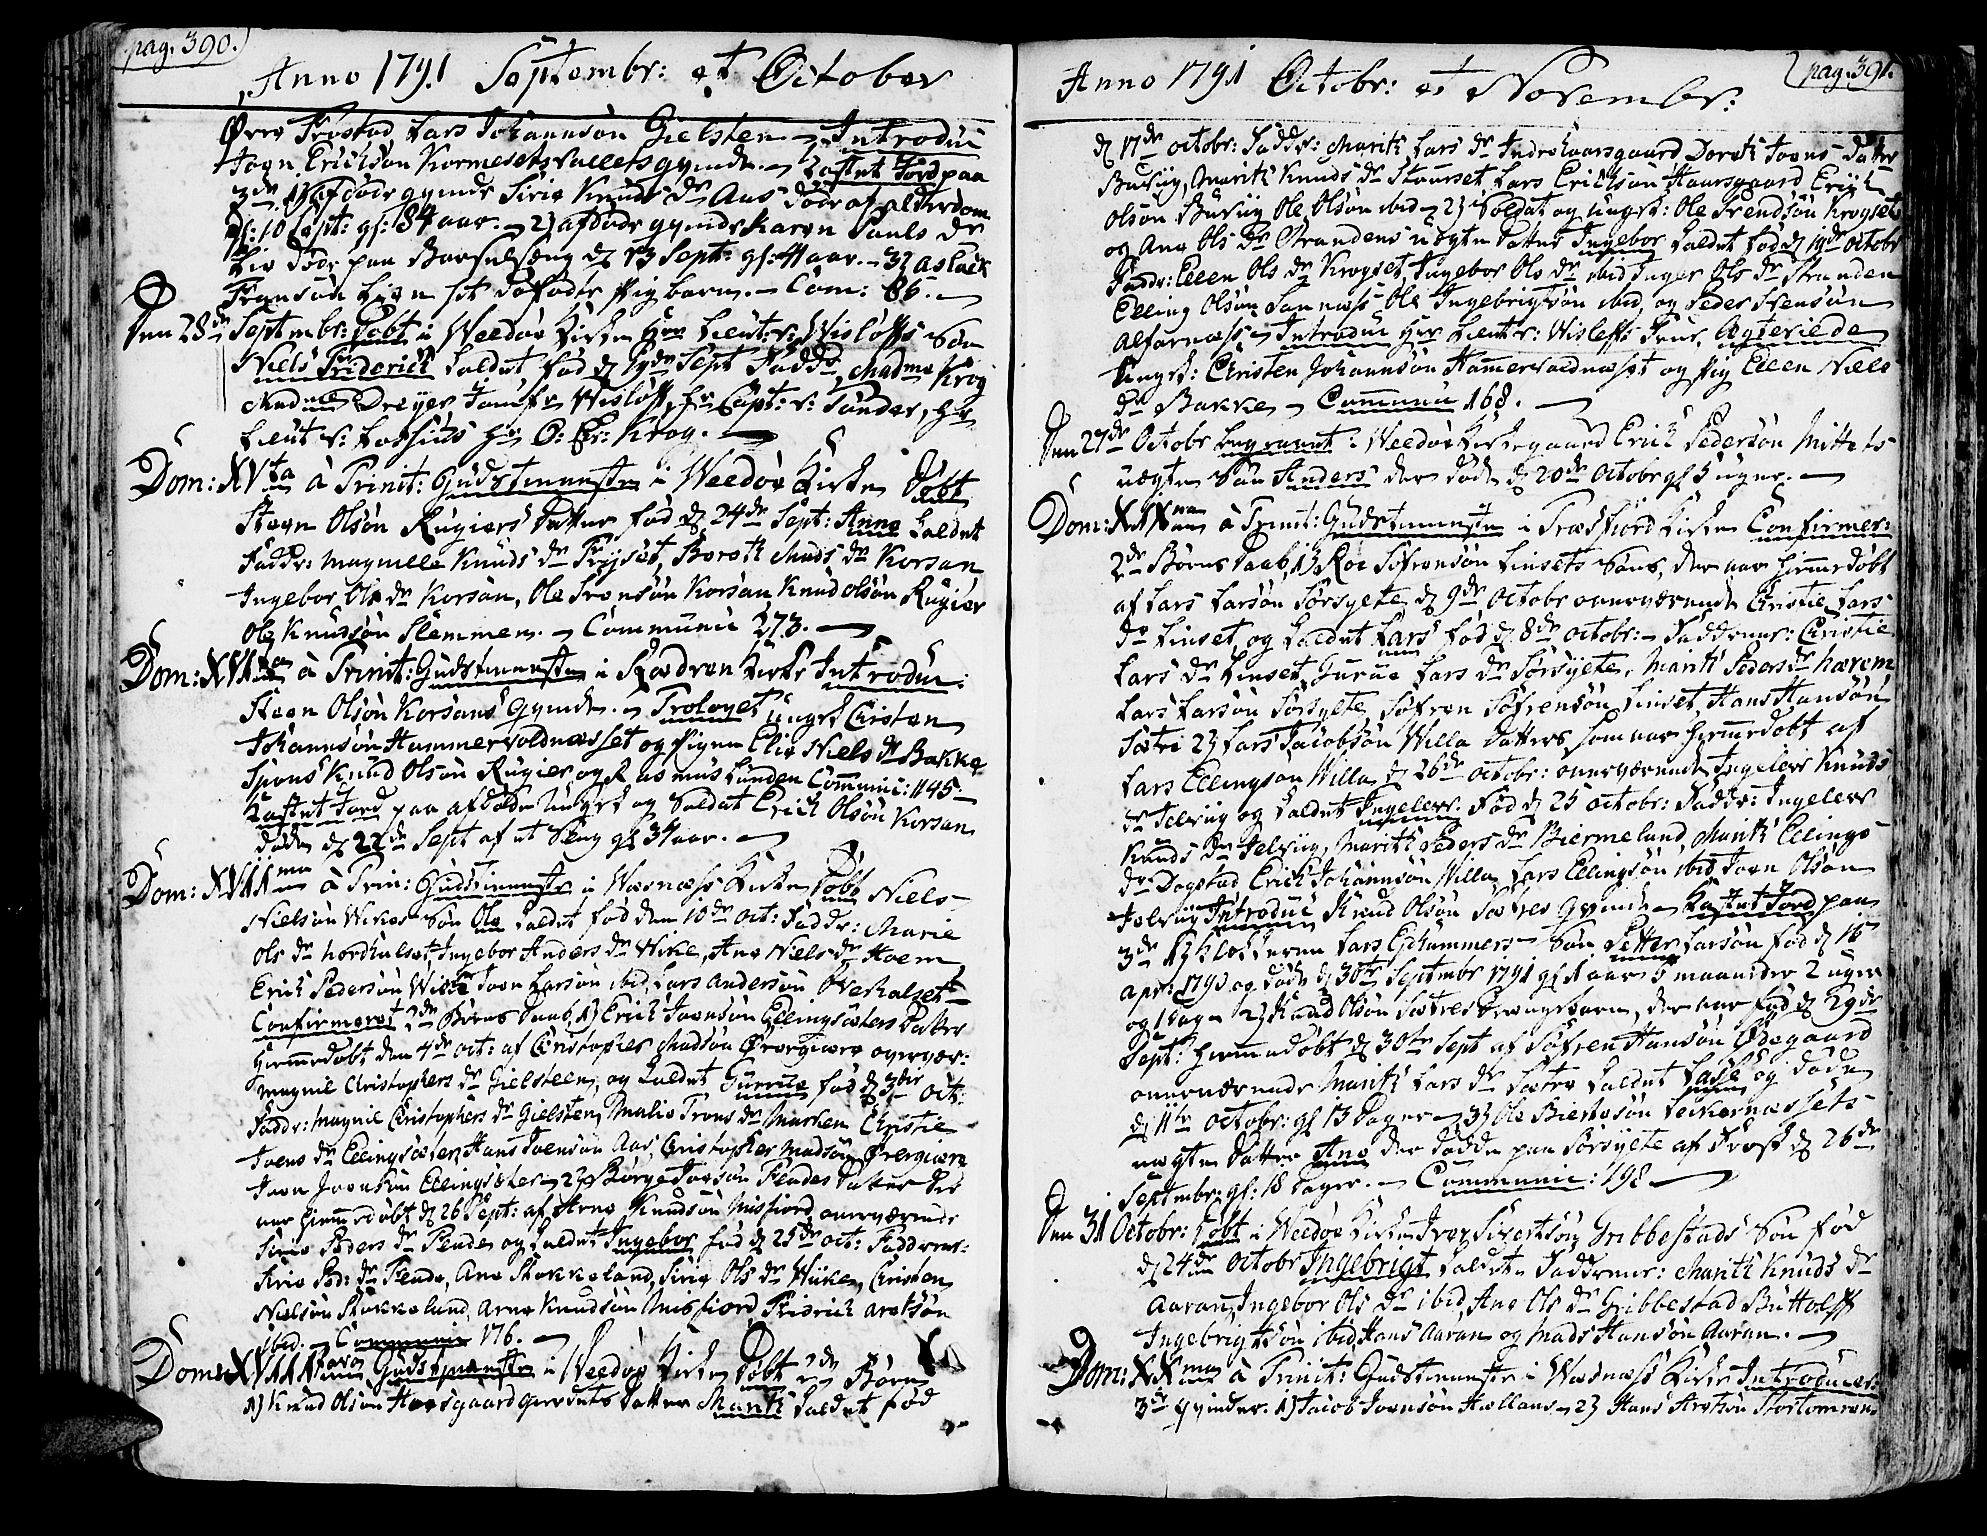 pag. 390.
Anno 1791 Septembr: et October
Øvre Frostad Lars Johannsön Gielsten Introduc
Joen Erichsön Kormesetsvallets qvinde. Kastet Jord paa
3de 1) afdøde qvinde Siri Knuds dr Aas døde af Alderdom
d: 10 Sept: gl: 84 aar. 2) afdøde qvinde Karen Pauls dr
Lie døde paa Barselseng d 13 Sept: gl: 41 aar. 3) Aslack
Fransön Lien et dødfødt Pigebarn. Com: 86.
Den 28de Septembr: Døbt i Weedøe Kirke Hrr Lieut: v: Wisløffs Søn
Niels Friderich kaldet fød d 9de Sept Fadd: Madme Krog
Madme Dreyer Jomfr Wisløff, Hr Capt: v: Tønder, Hr
Lieut v: Lossius Hr O: Er: Krog.
Dom: XVta à Trinit: Gudstienneste i Weedøe Kirke Døbt
Steen Olsön Rugiers Datter fød d 24de Sept: Anne kaldet
Faddr: Magnille Knuds dr Frijset, Boroth Mads dr Korsan
Ingebor Ols dr Korsan, Ole Svensön Korsan Knud Olsön Rugier
Ole Knudsön Slemmen. Communic 273.
Dom: XVIta à Trinit: Gudstienneste i Rødven Kirke Introduc:
Steen Olsön Korsans qvinde. Trolovet ungk Christen
Johannsön Hammervoldnesset og Pigen Elie Niels dr Bakke
Spons Knud Olsön Rugier og Rasmus Lunden Communic: 1145
Kastet Jord paa afdøde ungk og Soldat Erich Olsön Korsan
døde d 22de Sept af et Slag gl 34 aar.
Dom: XVIIma à Trin: Gudstienneste i Waanæss Kirke Døbt Niels
Nielsön Wikes Søn Ole kaldet fød den 10de oct: Faddr: Marie
Ols dr Nordhulset, Ingebor Anders dr Wike, Ane Niels dr Hoem
Erich Pedersön Wike Joen Larsön ibid, Lars Andersön Overhalset
Confirmeret 2de Børns Daab, 1) Erich Joensön Ellingsæters Datter
hiemmedøbt den 4de oct: af Christopher Madsön Øvergiære overvær:
Magnil Christophers dr Gielsteen, og kaldet Gurrue fød d 3die oct:
Faddr: Magnil Christophers dr Gielsten, Malie Trons dr Marken Christie
Joens dr Ellingsæter, Hans Joensön Aas, Christopher Madsön Øvergiære
Joen Joensön Ellingsæter 2) Børge Joesön Flendes Datter der
var hiemmedøbt d 26 Sept: af Arne Knudsön Misfiord, overværende
Siri Peders dr Flende og kaldet Ingebor fød d 25de oct: Fadderne:
Siri Ped: dr Flende, Ane Stokkeland, Siri Ols dr Wiike, Christen
Nielsön Stokkeland, Arne Knudsön Misfiord, Friderich Aretsön
ibid. Communic 176.
Dom: XVIIItava Gudstienneste i Weedøe Kirke Døbt 2de Børn
1) Knud Olsön Horsgaard gierdets Datter Marit kaldet fød

pag. 391.
Anno 1791 Octobr: et Novembr:
d 17de octobr: Faddr: Marith Lars dr Indrehaarsgaard Dorath Joens Datter
Buviig, Marith Knuds dr Stourset, Lars Erichsön Haarsgaard Erich
Olsön Buviig Ole Olsön ibid 2) Soldat og ungk: Ole Svendsön Krogset
og Ane Ols dr Strandens uegte Datter Ingebor kaldet fød d 19de octobr
Faddr: Ellen Ols dr Krogset, Ingebor Ols dr ibid Inger Ols dr Stranden
Elling Olsön Sannæss Ole Ingebrigtsön ibid, og Peder Svensön
Alfarnæss. Introduc Hrr Lieutn: v: Wisleffs Frue, Ægteviede
ungk: Christen Johannsön Hammervoldnesset og Pig Ellen Niels
dr Bakke Communic 168.
Den 27de Octobr begravet i Weedøe Kirkegaard Erich Pedersön Mittets
uegte Søn Anders der døde d 20de October gl 5 uger.
Dom: XIXna à Trinit: Gudstienneste i Tresfiord Kirke Confirmer:
2de Børns Daab, 1) Roe Söfrensön Linsets Søn, der var hiemmedøbt
af Lars Larsön Sörsylte d 9de Octobr overværende Christie Lars
dr Linset, og kaldet Lars fød d 8de octobr: Fadderne: Christie
Lars dr Linset, Gurue Lars dr Sörsylte, Marith Peders dr Hærem
Lars Larsön Sörsylte, Söfren Söfrensön Linset, Hans Hansön
Sætri 2) Lars Jacobsön Willa Datters, som var hiemmedøbt af
Lars Ellingsön Willa, d 26de octobr: overværende Ingelev Knuds
dr Selviig og kaldet Ingelev. Fød d 25 octobr: Faddr: Ingelev
Knuds dr Selviig, Marith Peders dr Biermeland, Marith Ellings
dr Dogstad Erich Johannsön Willa Lars Ellingsön ibid Joen Olsön
Selviig Introduc Knud Olsön Sætres Qvinde Kastet Jord paa
3de 1) Klokkeren Lars E: Hammers Søn Petter Larsön fød d 16
apr: 1790 og døde d 30te Septembr 1791 gl 1 aar 5 maaneder 2 uger
og 1 dag 2) Knud Olsön Sætres Drengebarn, der var fød d 29de
Sept: hiemmedøbt d 30te Sept af Söfren Hansön Ødegaard
overværende Marith Lars dr Sætre kaldet Lasse og døde
d 11te octobr: gl 13 dager 3) Ole Biertesön Leikernæssets
uægte Datter Ane der døde paa Sörsylte af Frost d 26de
Septembr: gl: 18 dager. Communic: 198
Den 31 Octobr: Døbt i Weedøe Kirke Iver Sivertsön Gribbestads Søn fød
d 24de October Ingebrigt kaldet Fadderne: Marith Knuds dr
Aaran, Ingebor Ols dr ibid, Ane Ols dr Gribbestad Buttolff
Ingebrigtsön ibid, Hans Aaran og Mads Hansön Aaran.
Dom: XXma à Trinit: Gudstienneste i Waanæss Kirke Introducer:
3de Qvinder. 1) Jacob Ivensön Hællans 2) Hans Aretsön Stortomren